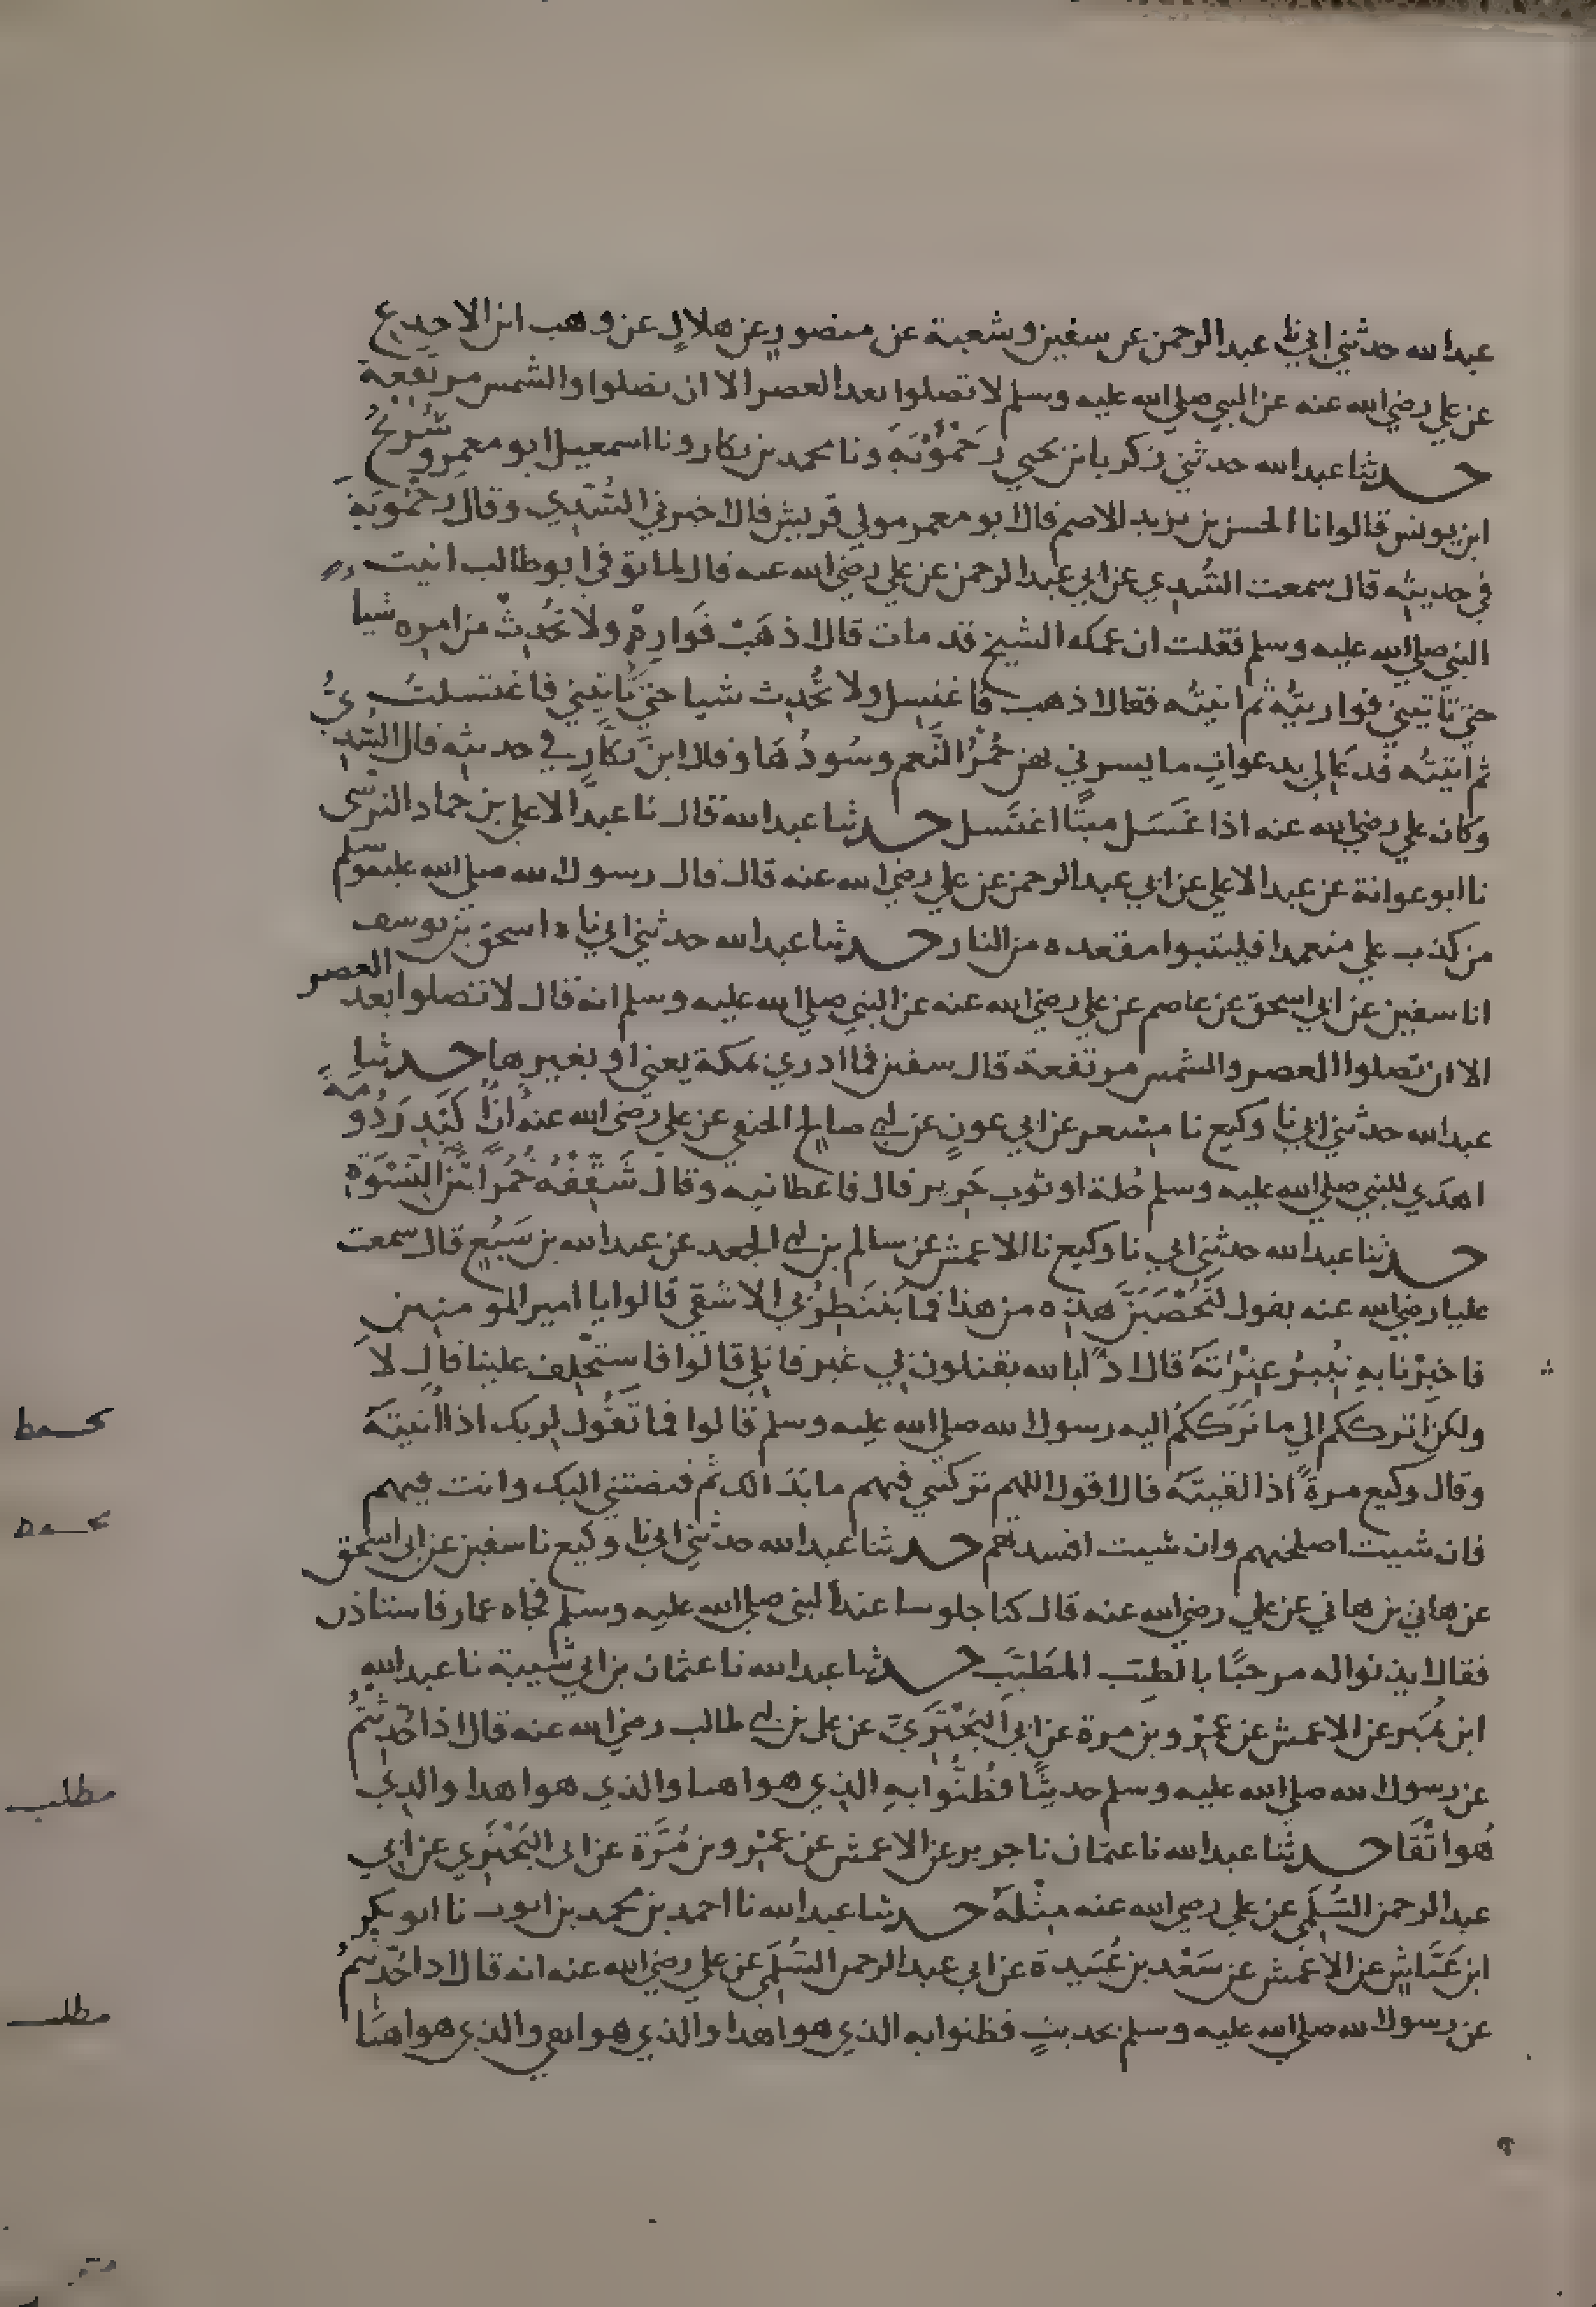 عبدالله حدثني ابي نا عبدالرحمن عن سفين وشعبة عن منصورٍ عن هلالٍ عن وهب ابن الاجدع
عن علي رضي الله عنه عن النبي صلى الله عليه وسلم لا تصلوا بعد العصر الا ان تصلوا والشمس مرتفعة
حدثنا عبدالله حدثني زكريا بن يحيى رَحْمُوْيَه ونا محمد بن بكار ونا اسمعيل ابو معمر وسُرَيْجُ
ابن يونس قالوا نا الحسن بن يزيد الاصم قال ابو معمر مولى قريش قال اخبرني السُّدي وقال رحمويه
في حديثه قال سمعت السُّدي عن ابي عبدالرحمن عن علي رضي الله عنه قال لما توفي ابو طالب اتيت
النبي صلى الله عليه وسلم فقلت ان عمك الشيخ قد مات قال اذهَبْ فَوارِهْ ولا تُحْدِثْ من امره شيا
حتى تاتيني فواريتُه ثم اتيتُه فقال اذهب فاغتسل ولا تُحْدِث شيا حتى تاتيني فاغتسلتُ
ثم اتيتُه فدعا لي بدعواتٍ ما يسرني بهن حُمْرُ النَّعم وسُودُها وقال ابن بكَّارٍ في حديثه قال السُّديُّ
وكان علي رضي الله عنه اذا غَسَل ميتًا اغتَسل حدثنا عبدالله قال نا عبدالاعلى بن حماد النرسي
نا ابو عوانة عن عبدالاعلى عن ابي عبدالرحمن عن علي رضي الله عنه قال قال رسول الله صلى الله عليه وسلم
من كذب علي متعمدا فليتبوا مقعده من النار حدثنا عبدالله حدثني ابي نا اسحق بن يوسف
انا سفين عن ابي اسحق عن عاصم عن علي رضي الله عنه عن النبي صلى الله عليه وسلم انه قال لا تصلوا بعد العصر
الا ان تصلوا العصر والشمس مرتفعة قال سفين فما ادري بمكة يعني او بغيرها حدثنا
عبدالله حدثني ابي نا وكيع نا مسعر عن ابي عونٍ عن ابي صالح الحنفي عن علي رضي الله عنه انَّ اُكَيْدِرَ دُوْمَةَ
اهدَي للنبي صلى الله عليه وسلم حُلة او ثوب حَرير قال فاعطانيه وقال شَقِّقْهُ خُمُرًا بَيْنَ النِّسْوَة
حدثنا عبدالله حدثني ابي نا وكيع نا الاعمش عن سالم بن ابي الجعد عن عبدالله بن سَبُعٍ قال سمعت
عليا رضي الله عنه يقول لَتُخْضَبَنَّ هذه من هذا فما يَنتَظِرُ بي الاشقي قالوا يا امير المومنينَ
فاخبِرْنا به نُبيرُ عِتْرَتَهُ قال اذًا بالله تقتلون بي غير قاتلي قالوا فاستَخْلِف علينا قال لا
ولكن اترككم الي ما تَرَككُم اليه رسول الله صلى الله عليه وسلم قالوا فما تَقُول لربك اذا اتيتَهُ
وقال وكيع مرةً اذا لقيتَه قال اقول اللهم تركتني فيهم ما بَدَا لك ثم قبضتني اليك وانت فيهم
فان شيت اصلحتهم وان شيت افسدتهم حدثنا عبدالله حدثني ابي نا وكيع نا سفين عن ابي اسحق
عن هاني بن هاني عن علي رضي الله عنه قال كنا جلوسا عند النبي صلى الله عليه وسلم فجاه عمار فاستاذن
فقال ايذنوا له مرحبًا بالطيّب المطَيَّبِ حدثنا عبدالله نا عثمان بن ابي شيبة نا عبدالله
ابن نُمَير عن الاعمش عن عَمْرو بن مرة عن ابي البَخْتَرِيّ عن علي بن ابي طالب رضي الله عنه قال اذا حُدِّثتُمْ
عن رسول الله صلى الله عليه وسلم حديثًا فظُنُّوا به الذي هو اهيا والذي هو اهدا والذي
هُو اتْقَا حدثنا عبدالله نا عثمان نا جرير عن الاعمش عن عَمْرو بن مُرَّة عن ابي البَخْتَرِي عن ابي
عبدالرحمن السُّلَمي عن علي رضي الله عنه مِثْلَهُ حدثنا عبدالله نا احمد بن محمد بن ايوب نا ابو بكر
ابن عَيَّاشٍ عن الاعمش عن سَعْد بن عُبَيدة عن ابي عبدالرحمن السُّلَمي عن علي رضي الله عنه انه قال اذا حُدِّثتُمْ
عن رسول الله صلى الله عليه وسلم بحديثٍ فظنوا به الذي هو اهدا والذي هو اتقي والذي هو اهيَا
مطلب
مطلب